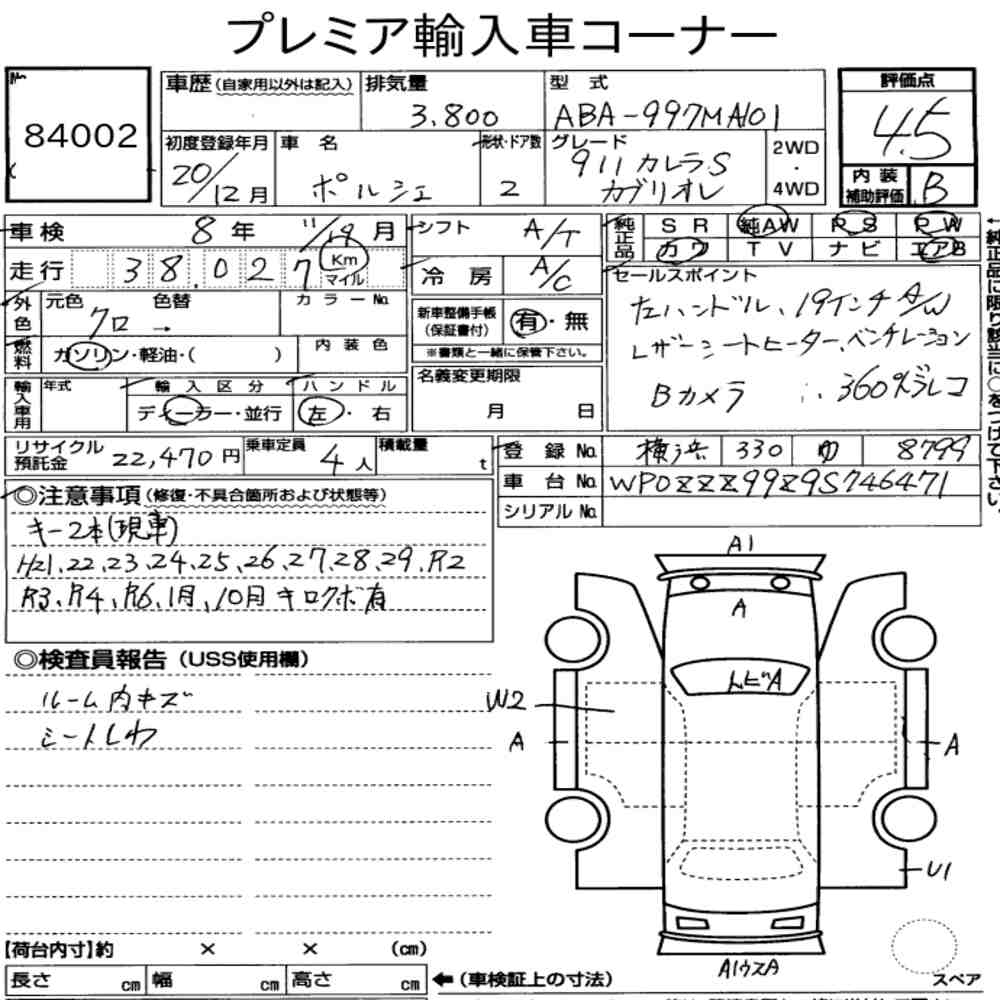 プレミア輸入車コーナー
No.
84002
車歴 (自家用以外は記入) 排気量 3.800
型式 ABA-997MA101
評価点 4.5
初度登録年月 20/12月
車名 ポルシェ
形状・ドア数 2
グレード 911 カレラS カブリオレ
2WD・4WD
内装補助評価 B
車検 8年 11/19月
シフト A/T
純正品 SR 純AW PS PW
カワ TV ナビ エアB
走行 38.027 Km マイル
冷房 A/C
セールスポイント
左ハンドル、19インチA/W
レザーシートヒーター、ベンチレーション
Bカメラ 360°ドラレコ
外色 元色 クロ 色替 → カラーNo.
燃料 ガソリン・軽油・( ) 内装色
新車整備手帳(保証書付) 有・無
※書類と一緒に保管下さい。
輸入車用 年式 輸入区分 ディーラー・並行 ハンドル 左・右
名義変更期限 月 日
リサイクル預託金 22,470円
乗車定員 4人
積載量 t
登録No. 横浜 330 ゆ 8799
車台No. WP0ZZZ99Z9S746471
シリアルNo.
←純正品に限り該当に○をつけて下さい。
◎注意事項 (修復・不具合箇所および状態等)
キー2本(現車)
H21、22、23、24、25、26、27、28、29、R2
R3、R4、R6、1月、10月 キロクボ有
◎検査員報告 (USS使用欄)
ルーム内キズ
シートしわ
A1
A
トビA
W2
A
A
U1
A1ウスA
スペア
【荷台内寸】約 × × (cm)
長さ cm 幅 cm 高さ cm ←(車検証上の寸法)